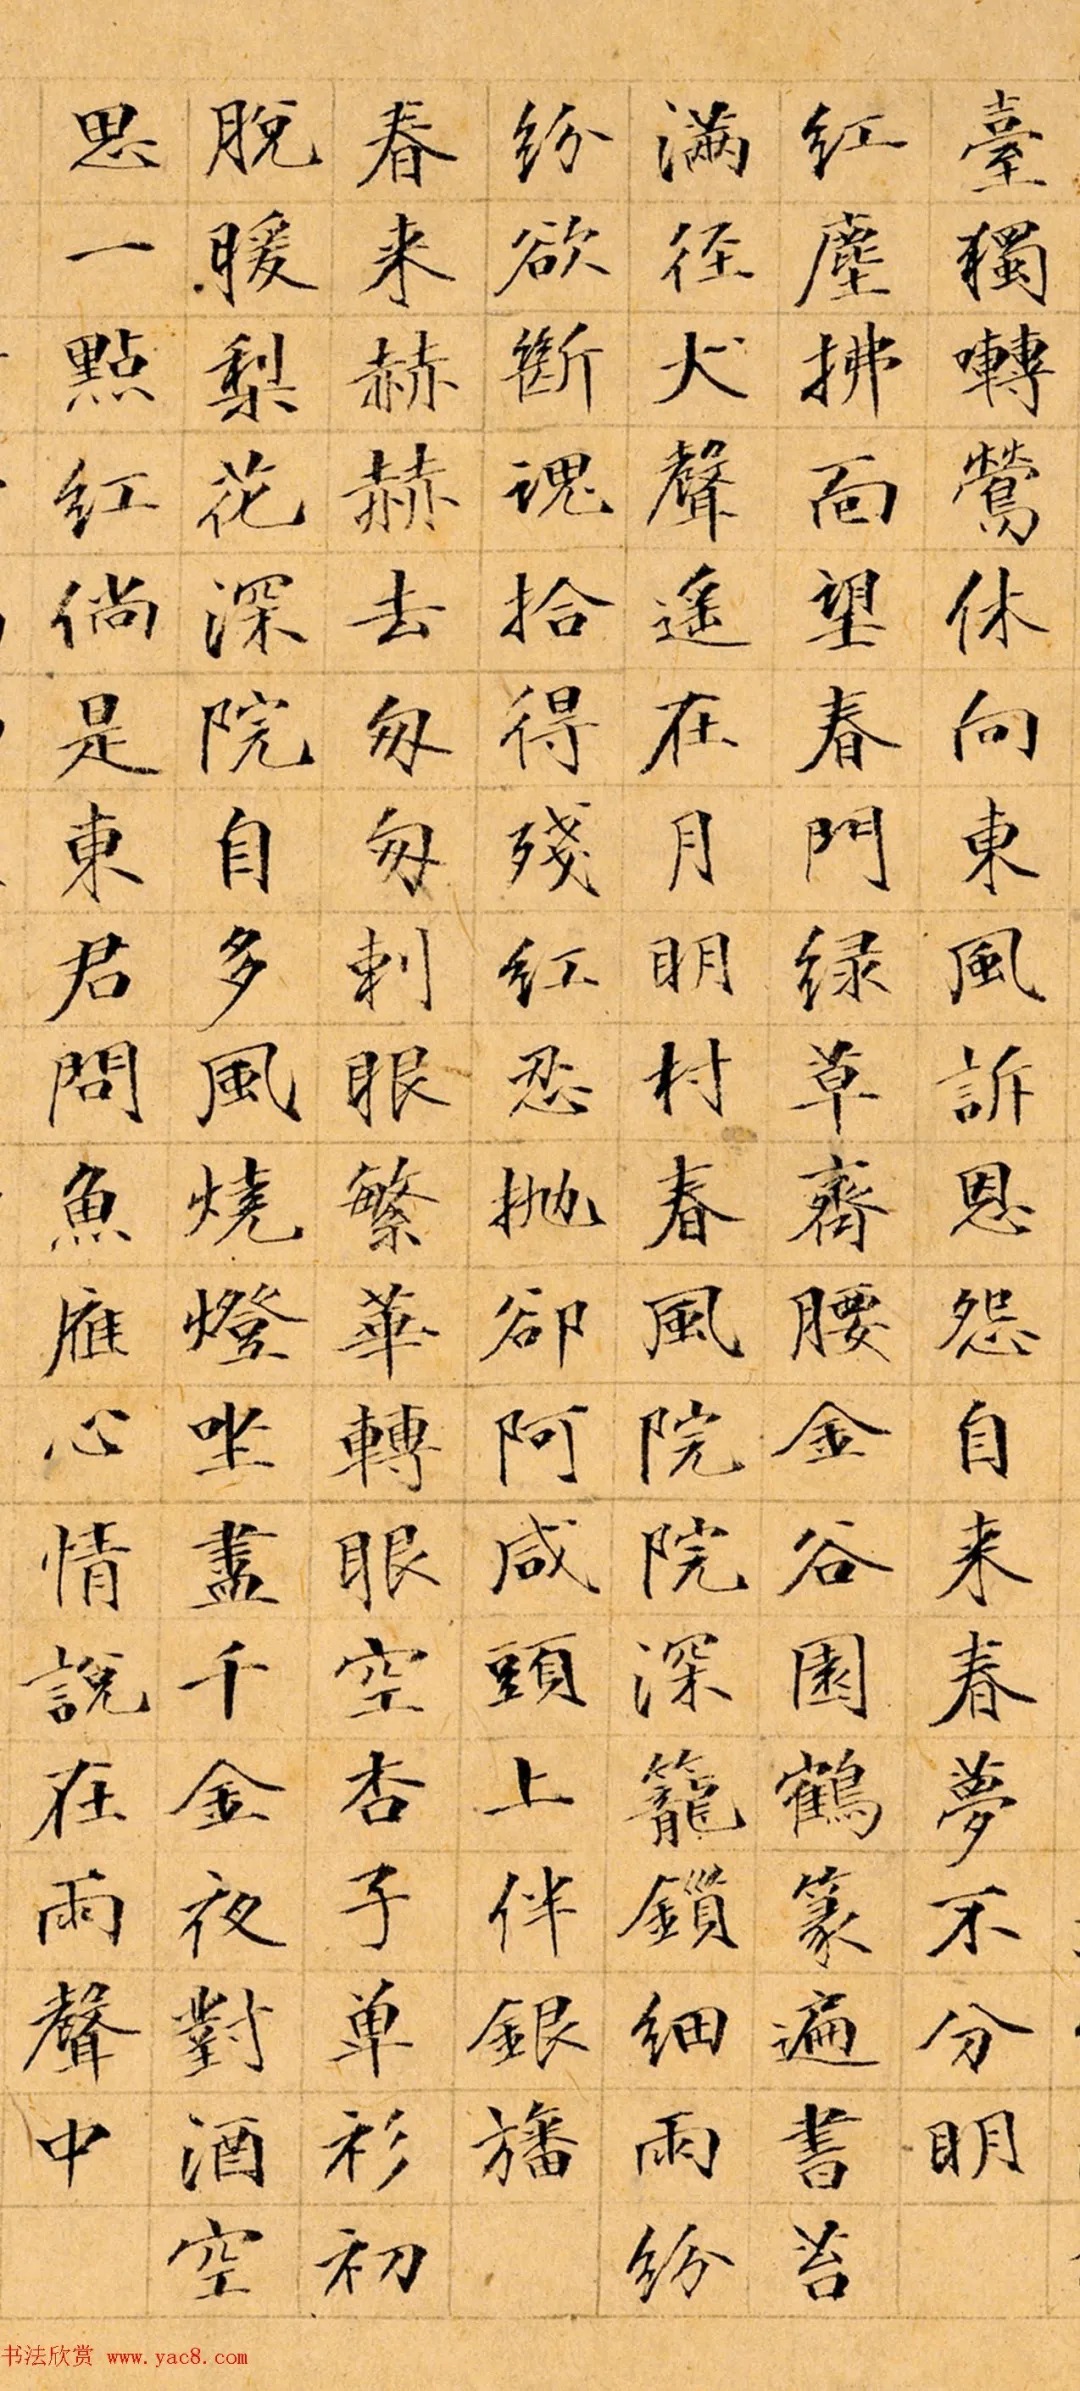 臺獨囀鶯休向東風訴恩怨自来春夢不分明
红塵拂面望春門緑草齊腰金谷園鶴篆遍書苔
満径犬聲遥在月明村春風院院深籠鎖细雨紛
紛欲斷魂拾得殘紅忍抛卻阿咸頭上伴銀旛
春来赫赫去匆匆刺眼繁華轉眼空杏子单衫初
脫暖梨花深院自多風燒燈坐盡千金夜對酒空
思一點红倘是東君問魚雁心情說在雨聲中
书法欣赏 www.yac8.com